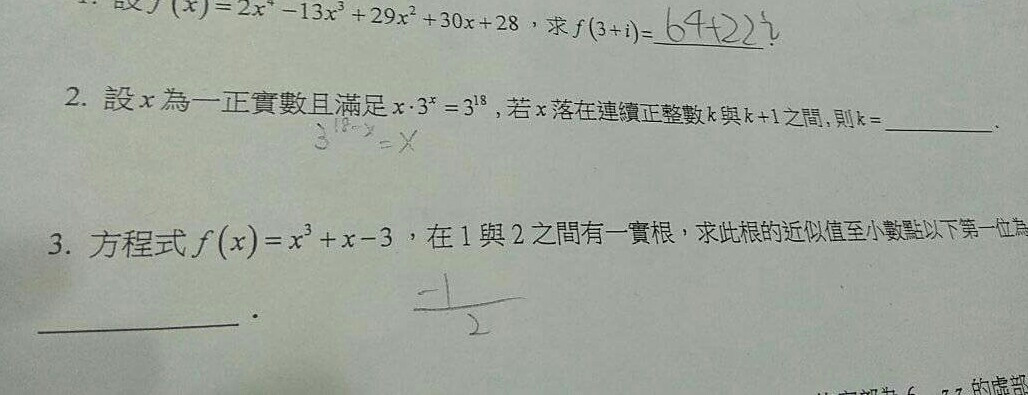 1. 設 f(x)=2x⁴-13x³+29x²+30x+28，求f(3+i)=64+22i
2. 設x為一正實數且滿足x·3ˣ=3¹⁸,若x落在連續正整數k與k+1之間,則k=________.
3^{18-x}=x
3. 方程式f(x)=x³+x-3，在1與2之間有一實根，求此根的近似值至小數點以下第一位為
________.
-1
2
的虛部